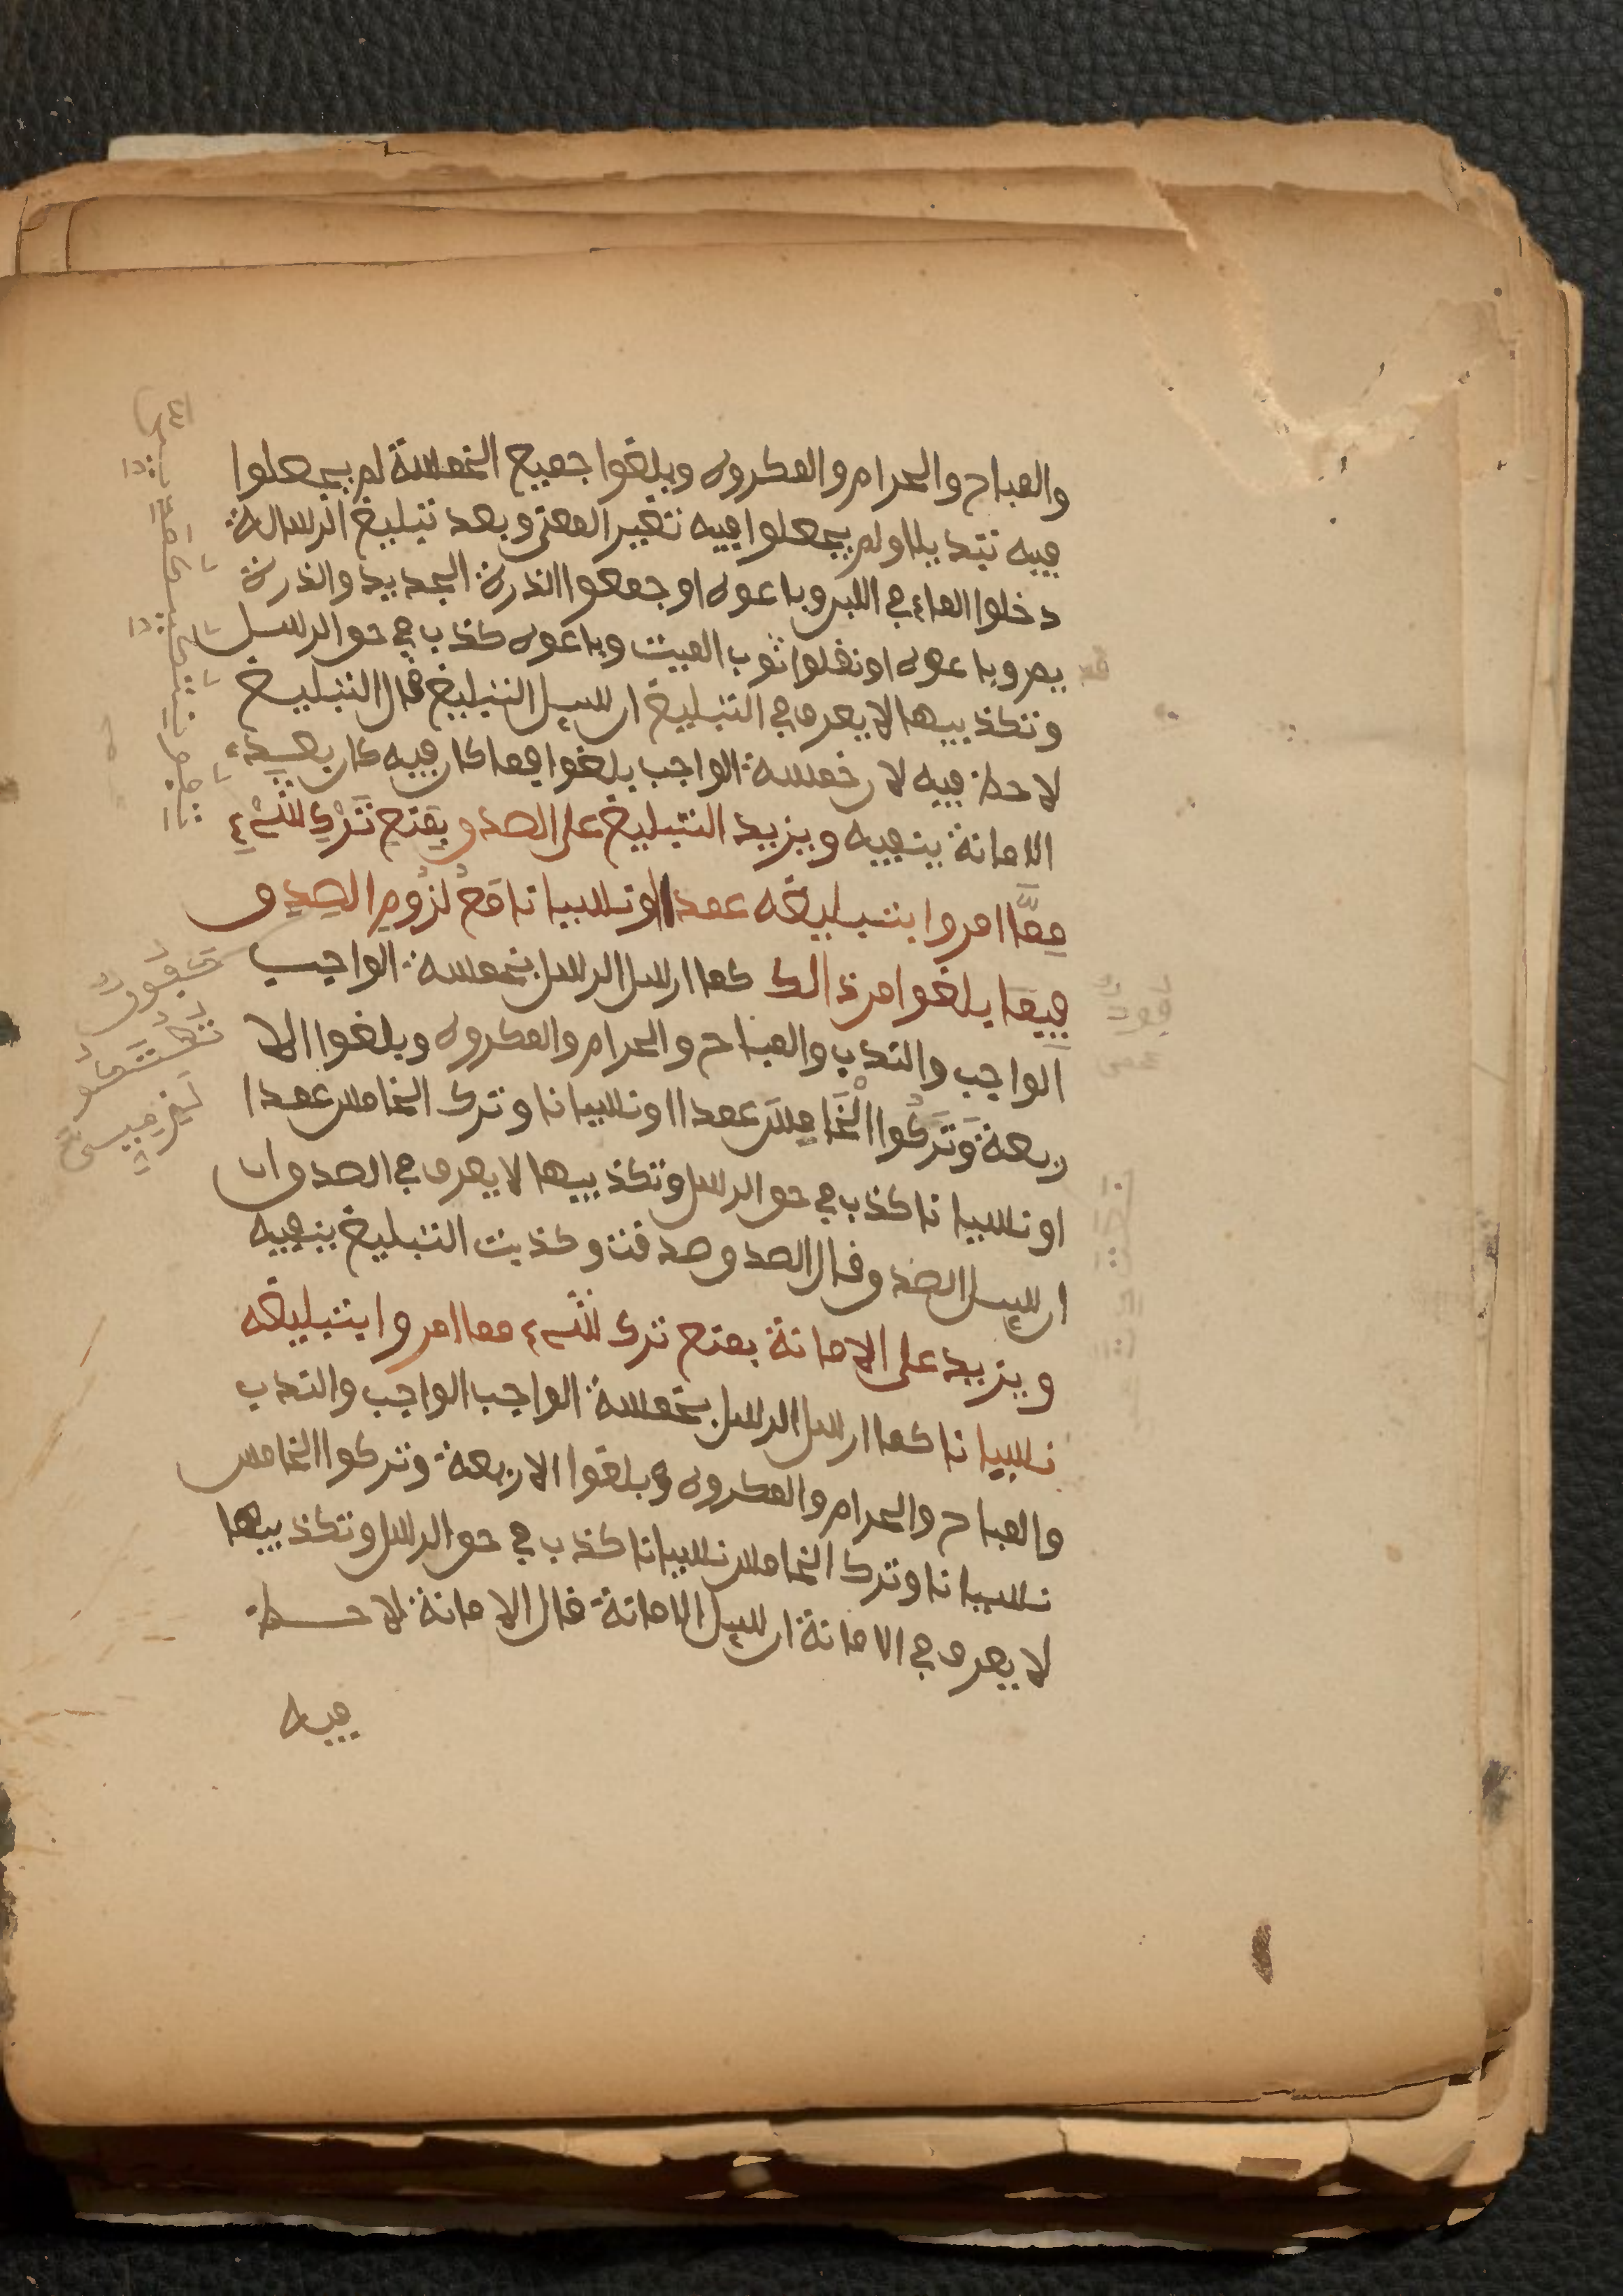 والمباح والحرام والمكروه وبلغوا جميع الخمسة لم يجعلوا
فيه تبديلا ولم يجعلوا فيه تغير المعنى وبعد تبليغ الرسالة
دخلوا الماء في اللبن وباعوه او جمعوا الذرة الجديد والذرة
وباعوه او نقلوا ثوب الميت وباعوه كذب في حق الرسل
وتكذيبها لا يعرف في التبليغ ان سيل التبليغ قال التبليغ
لا حظ فيه لان خمسة الواجب بلغوا فما كان فيه كان بعيد
الامانة ينفيه ويزيد التبليغ على الصدق بِفتحِ تَرْكِ شَيْءٍ
مِمَّا امروا بتبليغه عمدا او نسيانا مَعَ لزُومِ الصِدِق
فِيمَا بلغوا من ذالك كما ارسل الرسل بخمسة الواجب
الواجب والندب والمباح والحرام والمكروه وبلغوا الا
ربعة وَتَرَكُوا الْخَامِسَ عمدا او نسيانا وترك الخامس عمدا
او نسيانا كذب في حق الرسل وتكذيبها لا يعرف في الصدق ان
ان سيل الصدق قال الصدق صدقت وكذبت التبليغ ينفيه
ويزيد على الامانة بفتح ترك شيء مما امروا بتبليغه
نسيانا كما ارسل الرسل بخمسة الواجب الواجب والندب
والمباح والحرام والمكروه وبلغوا الاربعة وتركوا الخامس
نسيانا وترك الخامس نسيانا كذب في حق الرسل وتكذيبها
لا يعرف في الامانة ان سيل الامانة قال الامانة لا حظ
فيه